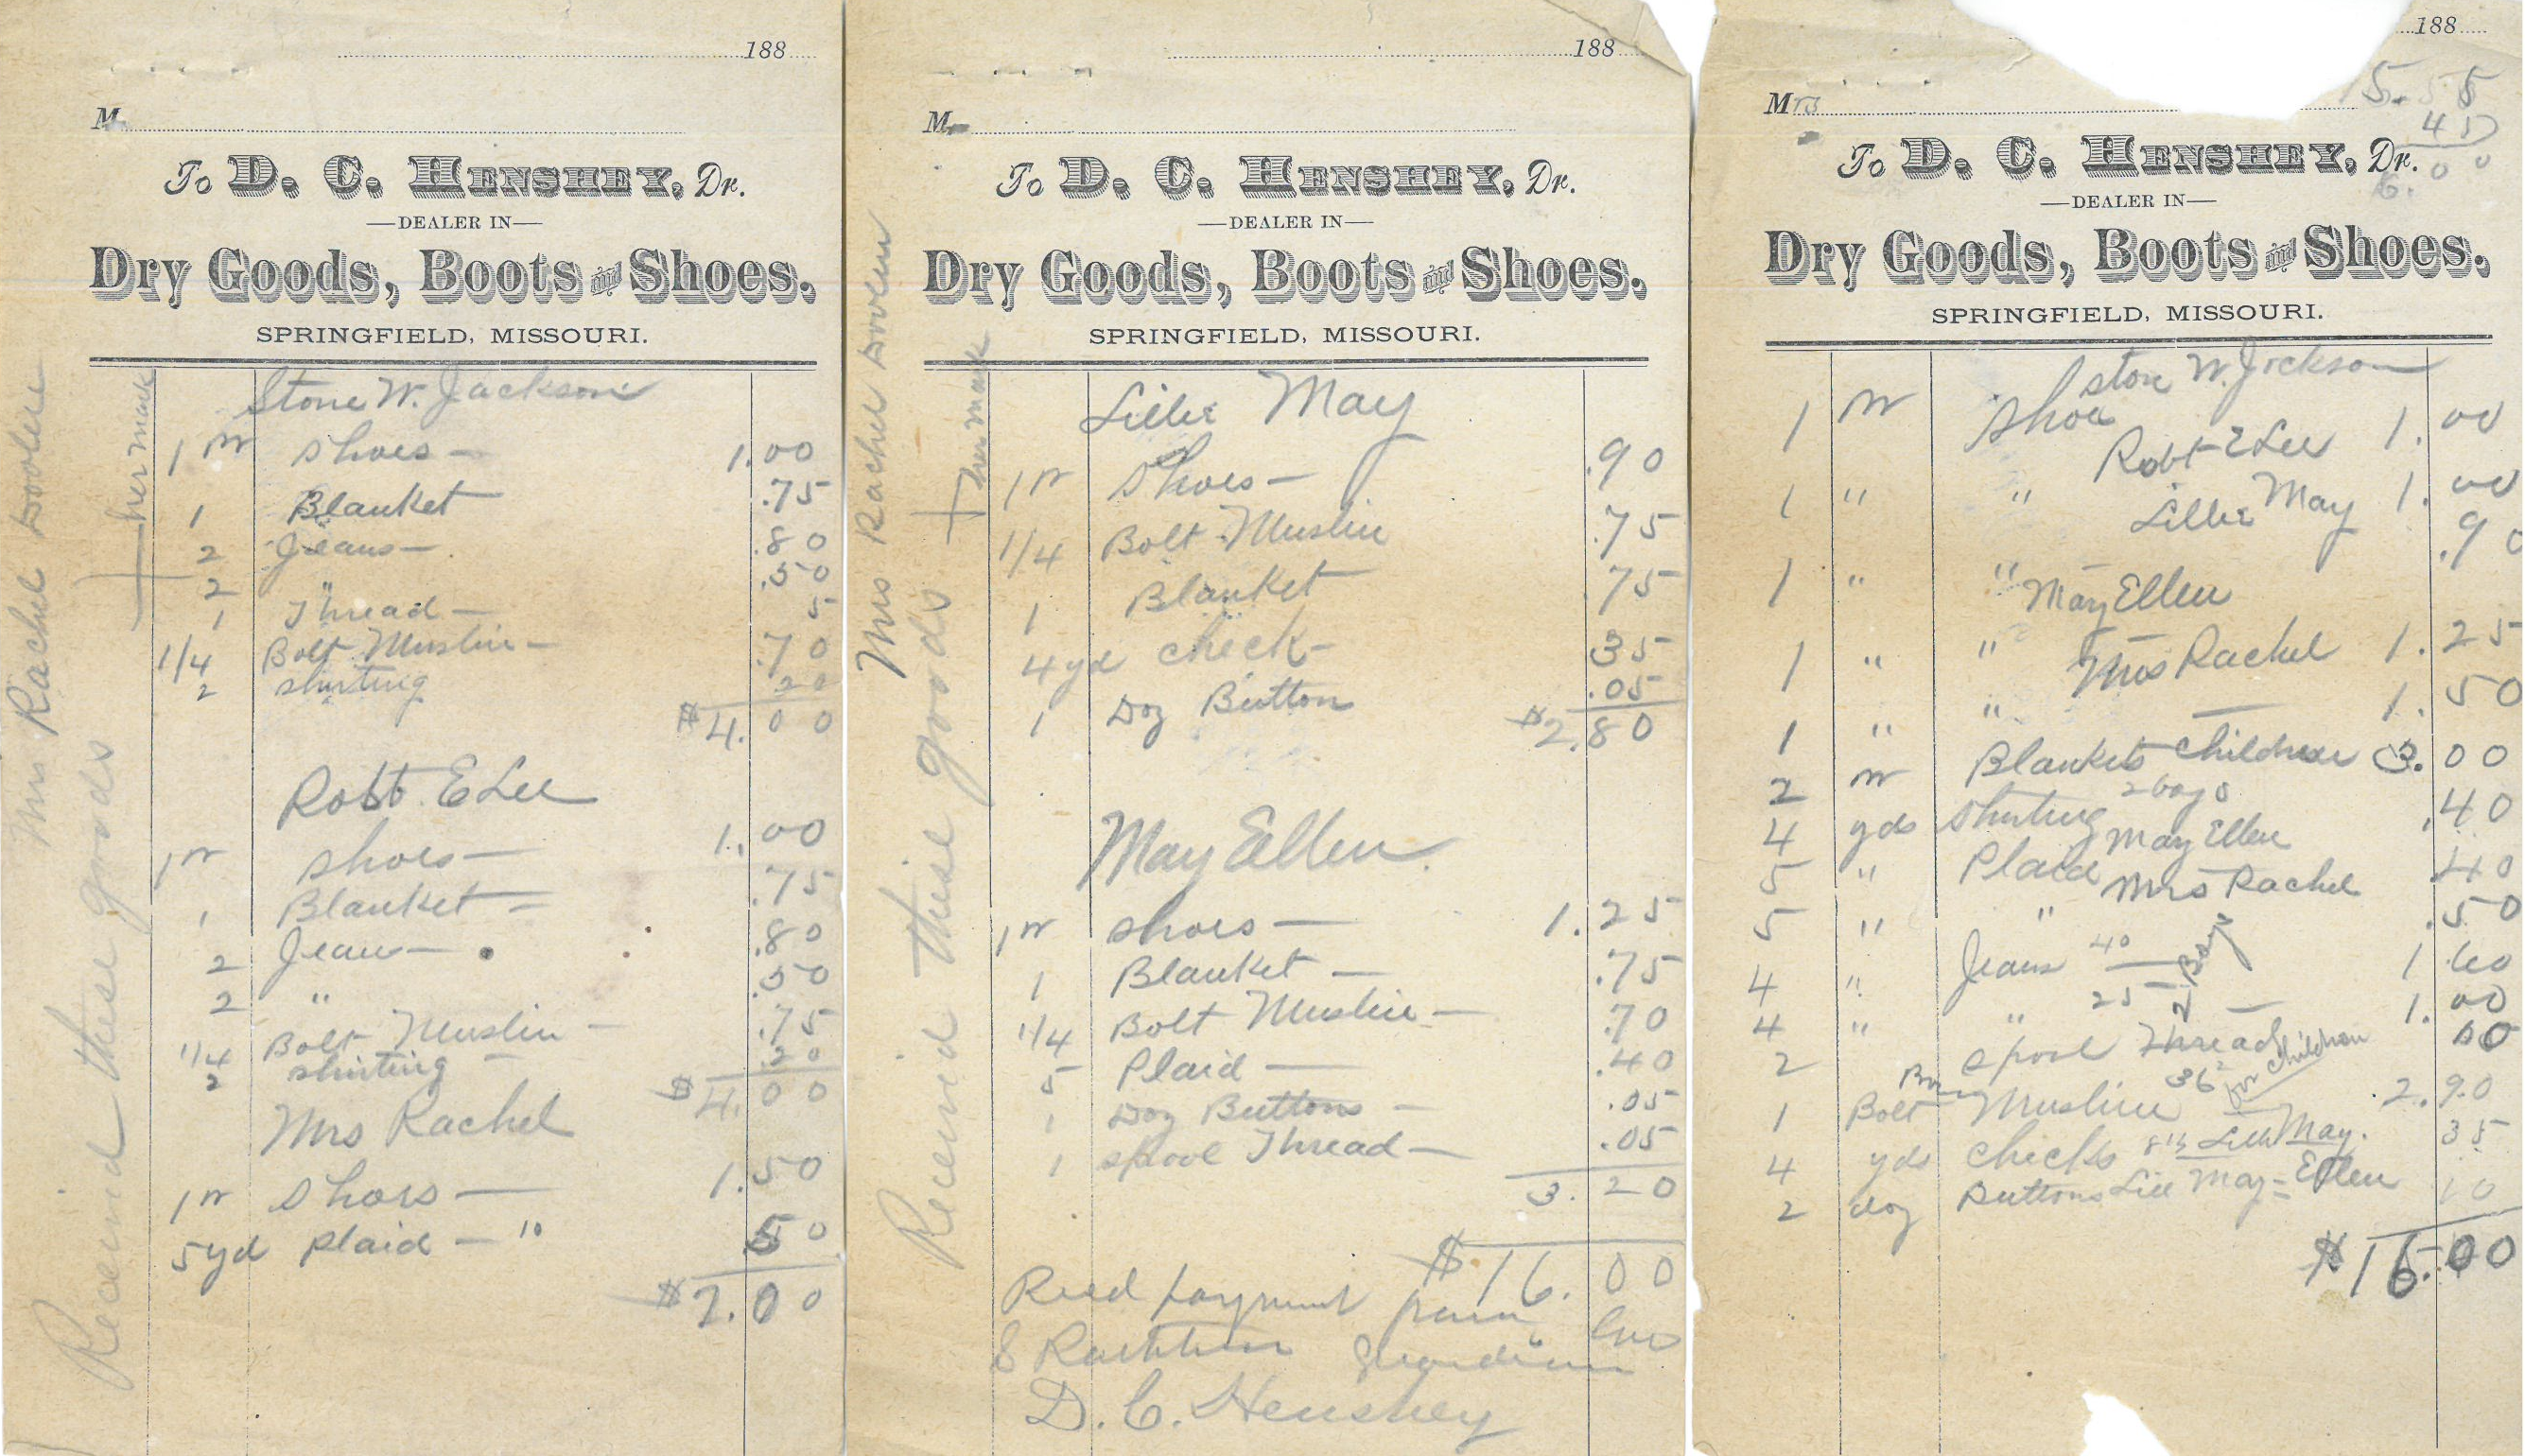 188
M
To D. C. HENSHEY, Dr.
—DEALER IN—
Dry Goods, Boots and Shoes.
SPRINGFIELD, MISSOURI.
Stone W. Jackson
1 pr shoes — 1.00
1 Blanket .75
2 Jeans — .80
2 " .50
1 Thread — 5
1/4 Bolt Muslin — .70
2 shirting 20
$4.00
Robt. E Lee
1 pr shoes — 1.00
1 Blanket — .75
2 Jean — .80
2 " .50
1/4 Bolt Muslin — .75
2 shirting .20
$4.00
Mrs Rachel
1 pr shoes — 1.50
5 yd plaid — 10 .50
$2.00
Received these goods
Mrs Rachel
her mark
188
M
To D. C. HENSHEY, Dr.
—DEALER IN—
Dry Goods, Boots and Shoes.
SPRINGFIELD, MISSOURI.
Lillie May
1 pr shoes — .90
1/4 Bolt Muslin .75
1 Blanket 75
4 yd check — 35
1 Doz Button .05
$2.80
May Ellen
1 pr shoes — 1.25
1 Blanket — .75
1/4 Bolt Muslin — 70
5 Plaid — .40
1 Doz Buttons — .05
1 spool Thread — .05
3.20
$16.00
Recd payment from
S guardian
D. C. Henshey
Received these goods
Mrs Rachel
her mark
188
Mrs
To D. C. HENSHEY, Dr.
—DEALER IN—
Dry Goods, Boots and Shoes.
SPRINGFIELD, MISSOURI.
Stone W. Jackson
1 pr Shoe 1.00
Robt E Lee
1 " " 1.00
Lillie May
1 " " .90
May Ellen
1 " " 1.25
Mrs Rachel
1 " " 1.50
2 pr Blankets Children 3.00
4 yds Shirting 2 boys .40
5 " Plaid May Ellen 40
5 " " Mrs Rachel .50
4 " Jeans 40 1.60
4 " " 25 2 Boys 1.00
2 spool Thread 10
1 Bolt Muslin 36 for children 2.90
4 yds checks Lillie May. 35
2 doz Buttons Lill May = Ellen 10
$16.00